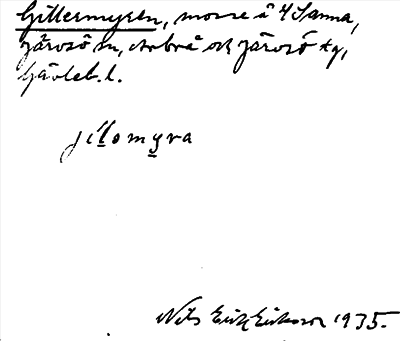 Gillermyren, mosse å 4 Sanna,
Järvsö sn, Arbrå och Järvsö tg,
Gävleb. l.
jìllomyra
Nils Erik Eriksson 1935.